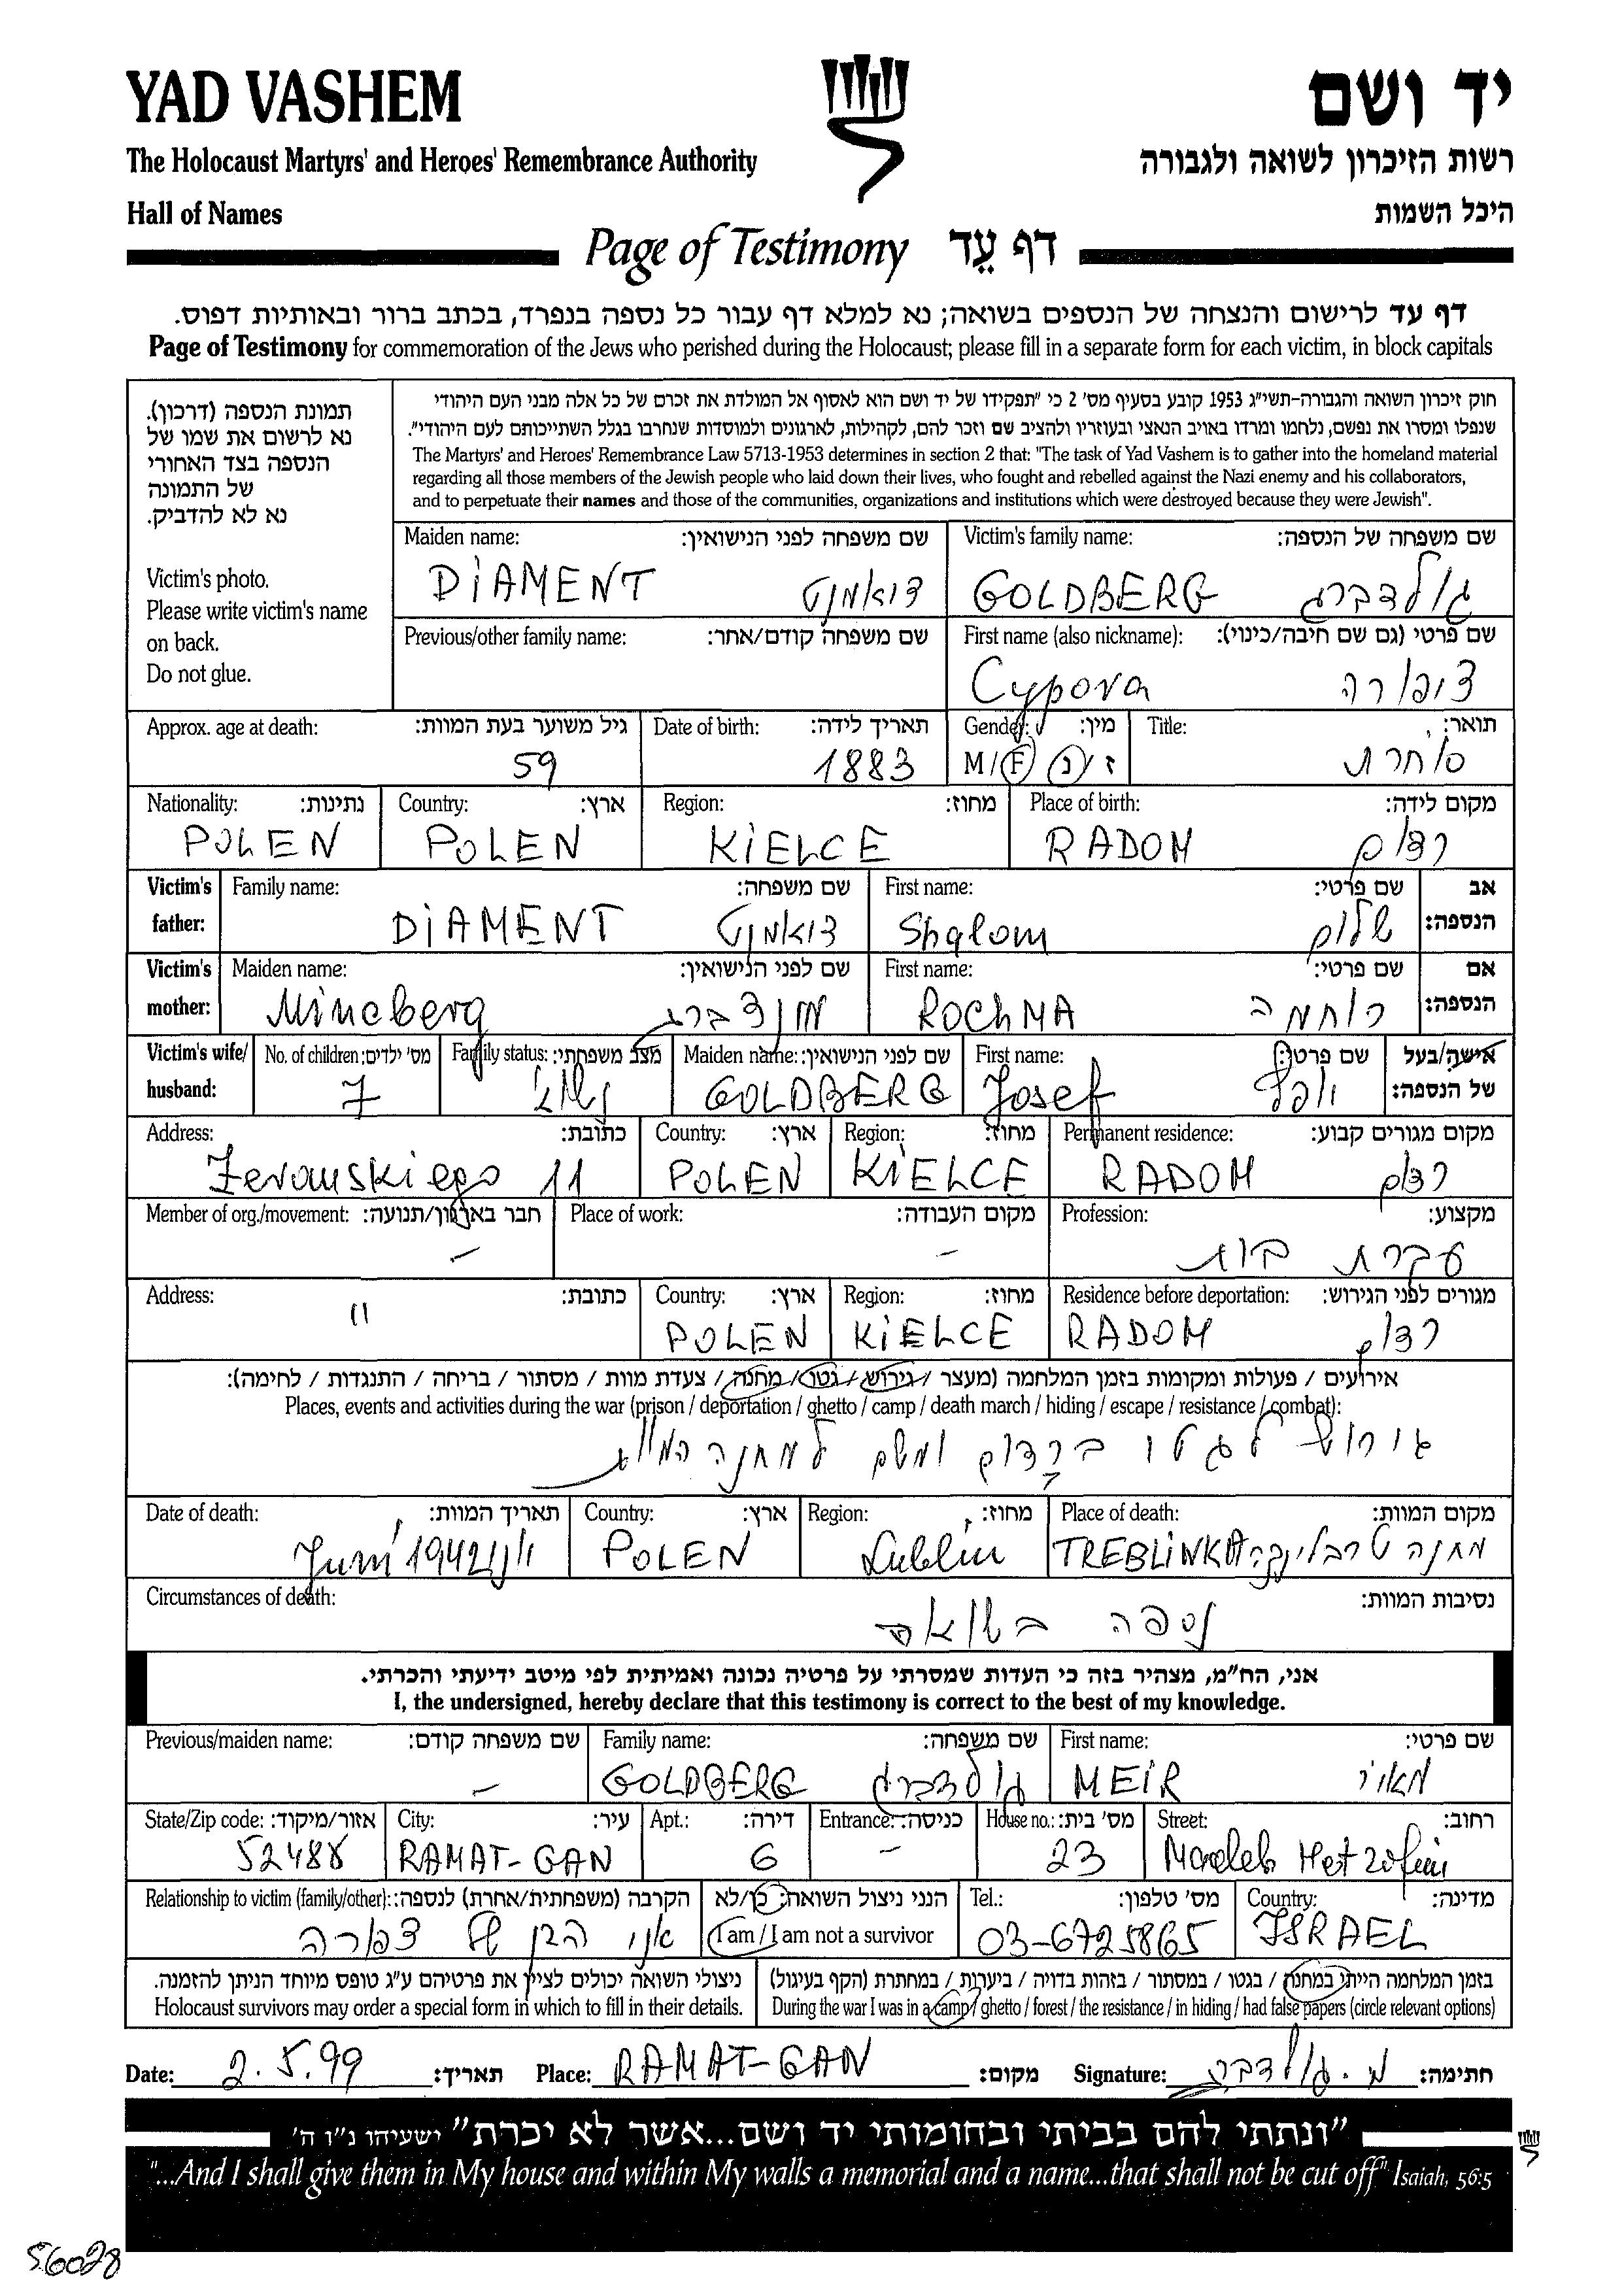 YAD VASHEM
יד ושם
The Holocaust Martyrs' and Heroes' Remembrance Authority
רשות הזיכרון לשואה ולגבורה
Hall of Names
היכל השמות
Page of Testimony דף עֵד
דף עד לרישום והנצחה של הנספים בשואה; נא למלא דף עבור כל נספה בנפרד, בכתב ברור ובאותיות דפוס.
Page of Testimony for commemoration of the Jews who perished during the Holocaust; please fill in a separate form for each victim, in block capitals
תמונת הנספה (דרכון).
נא לרשום את שמו של
הנספה בצד האחורי
של התמונה
נא לא להדביק.
Victim's photo.
Please write victim's name
on back.
Do not glue.
חוק זיכרון השואה והגבורה-תשי"ג 1953 קובע בסעיף מס' 2 כי "תפקידו של יד ושם הוא לאסוף אל המולדת את זכרם של כל אלה מבני העם היהודי
שנפלו ומסרו את נפשם, נלחמו ומרדו באויב הנאצי ובעוזריו ולהציב שם וזכר להם, לקהילות, לארגונים ולמוסדות שנחרבו בגלל השתייכותם לעם היהודי".
The Martyrs' and Heroes' Remembrance Law 5713-1953 determines in section 2 that: "The task of Yad Vashem is to gather into the homeland material
regarding all those members of the Jewish people who laid down their lives, who fought and rebelled against the Nazi enemy and his collaborators,
and to perpetuate their names and those of the communities, organizations and institutions which were destroyed because they were Jewish".
Maiden name: שם משפחה לפני הנישואין:
DIAMENT דיאמנט
Victim's family name: שם משפחה של הנספה:
GOLDBERG גולדברג
Previous/other family name: שם משפחה קודם/אחר:
First name (also nickname): שם פרטי (גם שם חיבה/כינוי):
Cypora ציפורה
Approx. age at death: גיל משוער בעת המוות:
59
Date of birth: תאריך לידה:
1883
Gender: מין:
M / F ז / נ
Title: תואר:
סוחרת
Nationality: נתינות:
POLEN
Country: ארץ:
POLEN
Region: מחוז:
KIELCE
Place of birth: מקום לידה:
RADOM רדום
Victim's father:
Family name: שם משפחה:
DIAMENT דיאמנט
First name: שם פרטי:
Shalom שלום
אב הנספה:
Victim's mother:
Maiden name: שם לפני הנישואין:
Mincberg מינצברג
First name: שם פרטי:
ROCHMA רוחמה
אם הנספה:
Victim's wife/ husband:
No. of children: מס' ילדים:
7
Family status: מצב משפחתי:
Maiden name: שם לפני הנישואין:
GOLDBERG
First name: שם פרטי:
Josef יוסף
אישה/בעל של הנספה:
Address: כתובת:
Zeromskiego 11
Country: ארץ:
POLEN
Region: מחוז:
KIELCE
Permanent residence: מקום מגורים קבוע:
RADOM רדום
Member of org./movement: חבר בארגון/תנועה:
–
Place of work: מקום העבודה:
–
Profession: מקצוע:
עקרת בית
Address: כתובת:
11
Country: ארץ:
POLEN
Region: מחוז:
KIELCE
Residence before deportation: מגורים לפני הגירוש:
RADOM רדום
אירועים / פעולות ומקומות בזמן המלחמה (מעצר / גירוש / גטו / מחנה / צעדת מוות / מסתור / בריחה / התנגדות / לחימה):
Places, events and activities during the war (prison / deportation / ghetto / camp / death march / hiding / escape / resistance / combat):
גירוש לגטו ברדום ומשם למחנה המוות
Date of death: תאריך המוות:
Juni 1942 יוני
Country: ארץ:
POLEN
Region: מחוז:
Lublin
Place of death: מקום המוות:
TREBLINKA מחנה טרבלינקה
Circumstances of death: נסיבות המוות:
נספה בשואה
אני, הח"מ, מצהיר בזה כי העדות שמסרתי על פרטיה נכונה ואמיתית לפי מיטב ידיעתי והכרתי.
I, the undersigned, hereby declare that this testimony is correct to the best of my knowledge.
Previous/maiden name: שם משפחה קודם:
–
Family name: שם משפחה:
GOLDBERG גולדברג
First name: שם פרטי:
MEIR מאיר
State/Zip code: אזור/מיקוד:
52488
City: עיר:
RAMAT-GAN
Apt.: דירה:
6
Entrance: כניסה:
–
House no.: מס' בית:
23
Street: רחוב:
Relationship to victim (family/other): הקרבה (משפחתית/אחרת) לנספה:
אני הבן של צפורה
הנני ניצול השואה: כן/לא
I am / I am not a survivor
Tel.: מס' טלפון:
03-6725865
Country: מדינה:
ISRAEL
ניצולי השואה יכולים לציין את פרטיהם ע"ג טופס מיוחד הניתן להזמנה.
Holocaust survivors may order a special form in which to fill in their details.
בזמן המלחמה הייתי במחנה / בגטו / במסתור / בזהות בדויה / ביערות / במחתרת (הקף בעיגול)
During the war I was in a camp / ghetto / forest / the resistance / in hiding / had false papers (circle relevant options)
Date: 2.5.99 תאריך:
Place: RAMAT-GAN מקום:
Signature: מ. גולדברג חתימה:
"ונתתי להם בביתי ובחומותי יד ושם...אשר לא יכרת" ישעיהו נ"ו ה'
"...And I shall give them in My house and within My walls a memorial and a name...that shall not be cut off" Isaiah, 56:5
56028